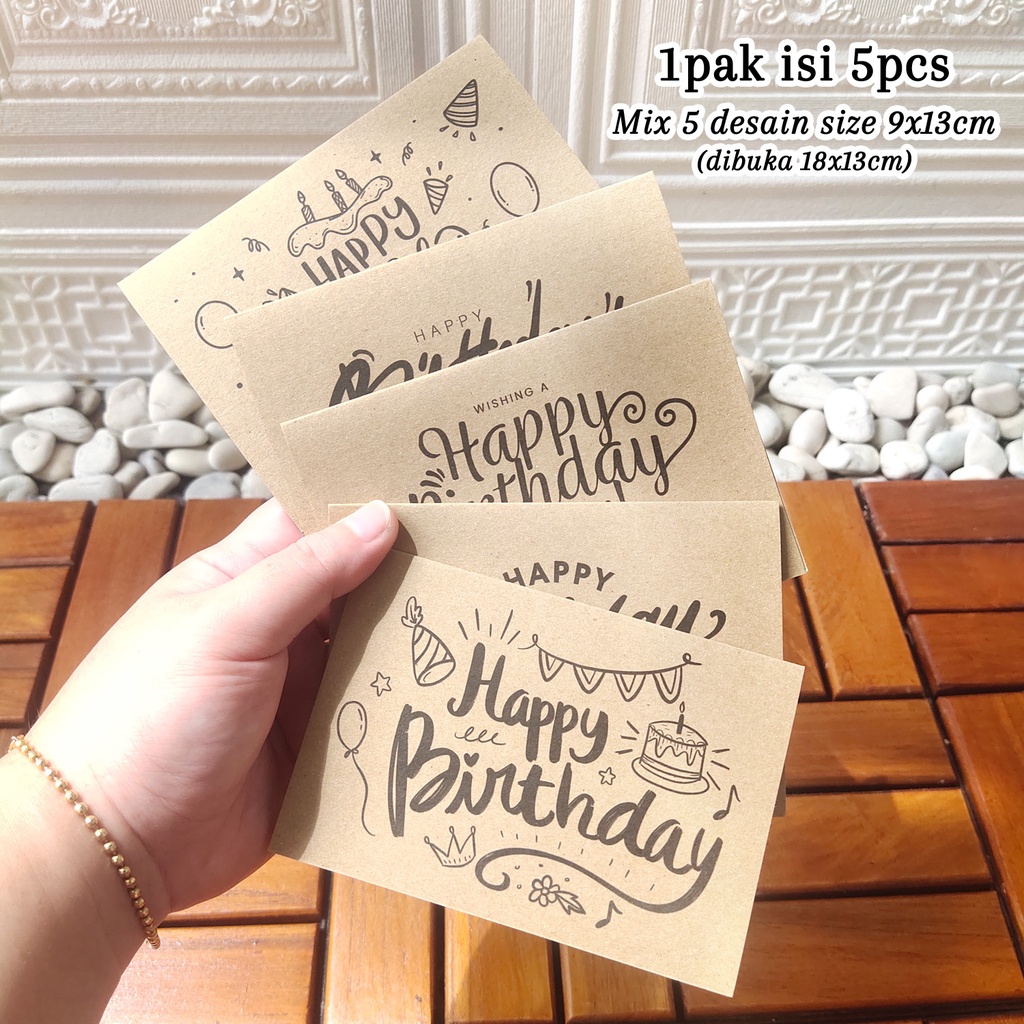 1pak isi 5pcs
Mix 5 desain size 9x13cm
(dibuka 18x13cm)
HAPPY
HAPPY
Birthday
WISHING A
Happy
Birthday
HAPPY
Happy
Birthday